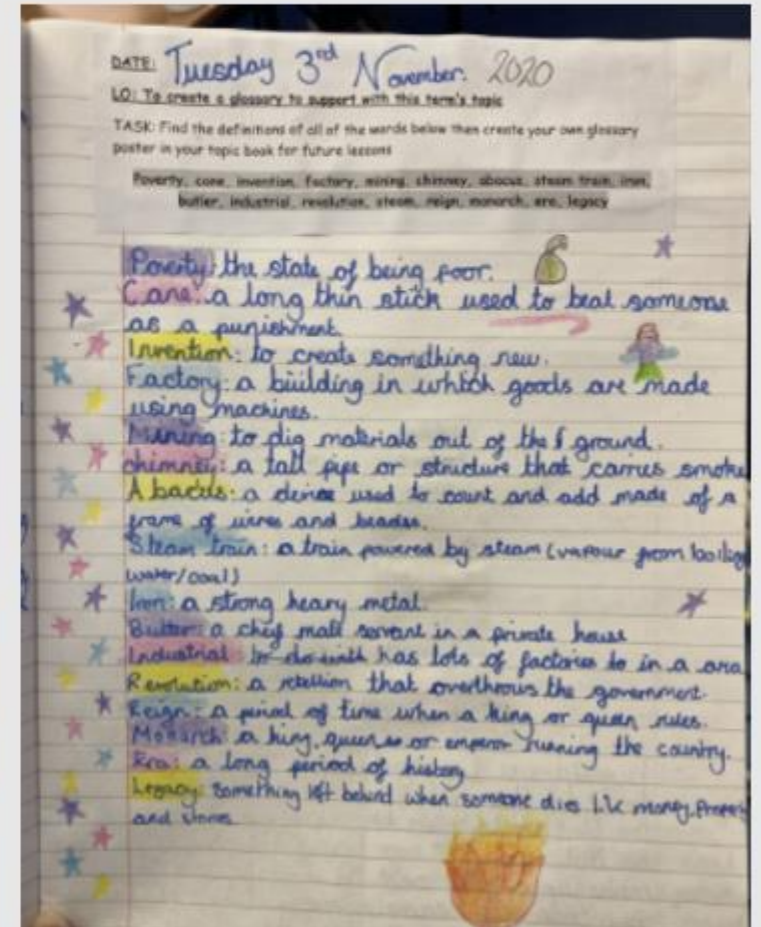 DATE: Tuesday 3rd November. 2020
LO: To create a glossary to support with this term's topic
TASK: Find the definitions of all of the words below then create your own glossary
poster in your topic book for future lessons
Poverty, cane, invention, factory, mining, chimney, abacus, steam train, iron,
butler, industrial, revolution, steam, reign, monarch, era, legacy
Poverty: the state of being poor.
Cane: a long thin stick used to beat someone
as a punishment.
Invention: to create something new.
Factory: a building in which goods are made
using machines.
Mining: to dig materials out of the ground.
chimney: a tall pipe or structure that carries smoke
Abacus: a device used to count and add made of a
frame of wires and beads.
Steam train: a train powered by steam (vapour from boiling
water/coal)
Iron: a strong heavy metal.
Butler: a chief male servant in a private house
Industrial: has lots of factories in a area
Revolution: a rebellion that overthrows the government.
Reign: a period of time when a king or queen rules.
Monarch: a king, queen or emperor running the country.
Era: a long period of history
Legacy: something left behind when someone dies like money,
and